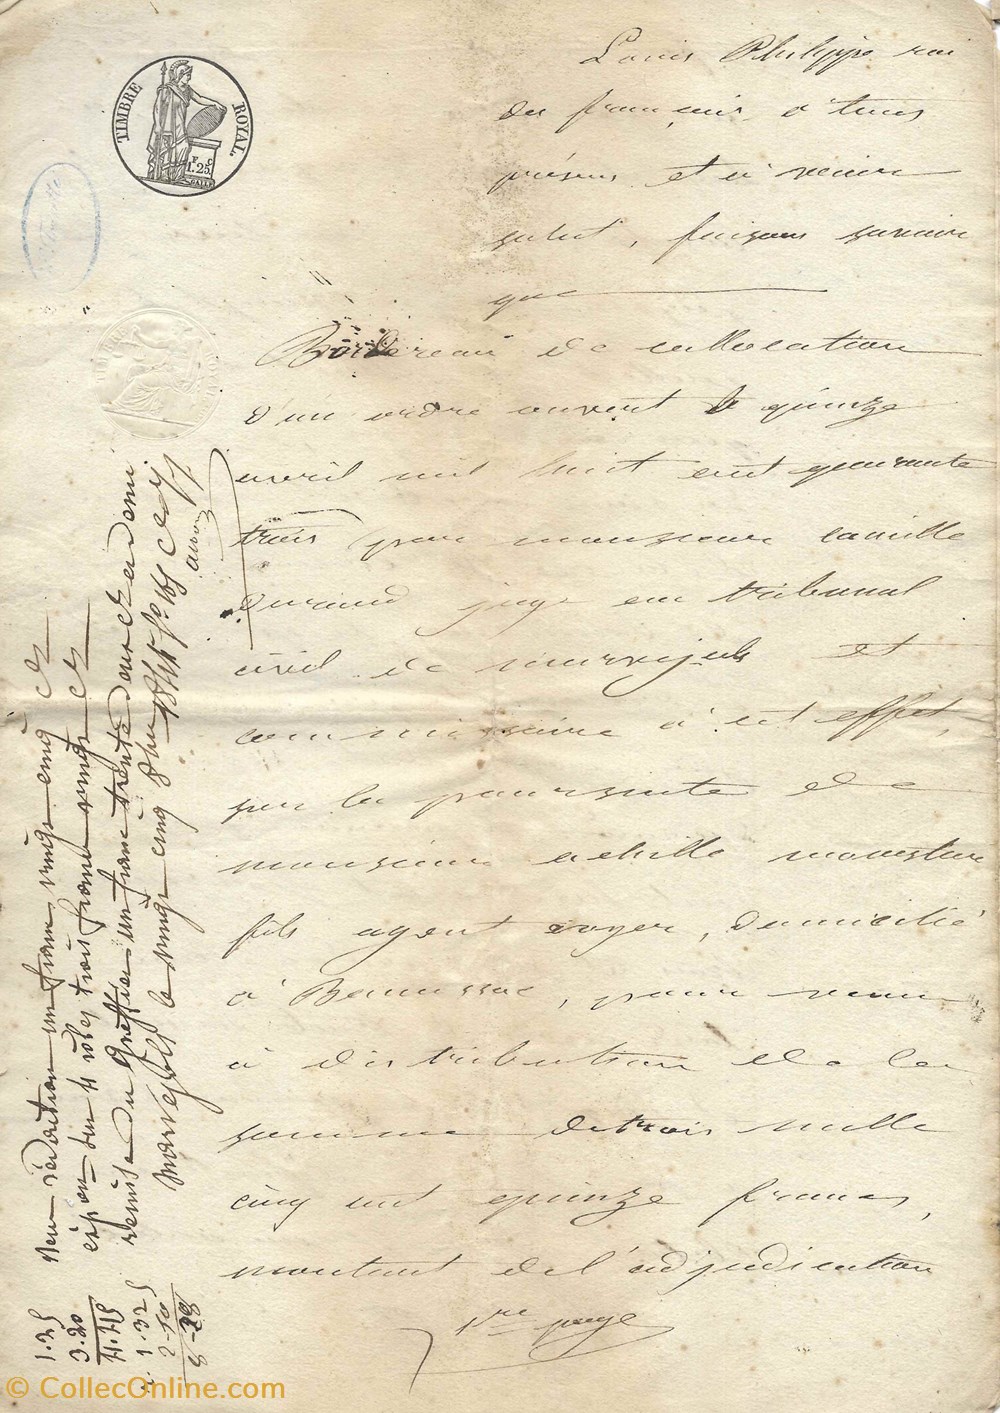 TIMBRE ROYAL.
F C
1.25.
Louis Philippe roi
des français, à tous
présens et à venir
salut, faisons savoir
que
Bordereau de collocation
d'un ordre ouvert le quinze
avril mil huit cent quarante
trois par monsieur camille
durand juge au tribunal
civil de marvejols et
commissaire à cet effet,
sur la poursuite de
monsieur achille
fils agent voyer, domicilié
à pour venir
à distribution de la
somme de trois mille
cinq cent quinze francs,
montant de l'adjudication
1re page
rédaction un franc vingt cinq c
sur 4 rôles trois francs vingt c
remise du Greffier un franc trente deux c
marvejols le vingt cinq
1.25
3.20
4.45
1.32
2-10
© CollecOnline.com